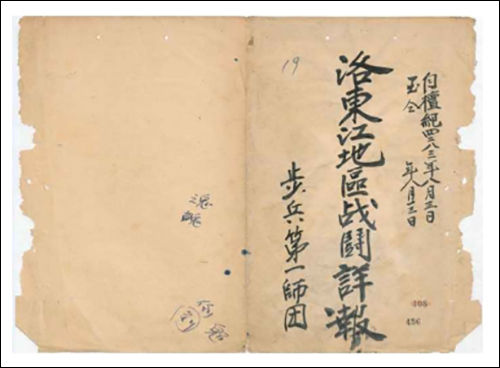 自檀紀四二八三年八月三日
至仝 年八月 日
洛東江地區战鬪詳報
19
步兵第一師团
408
456